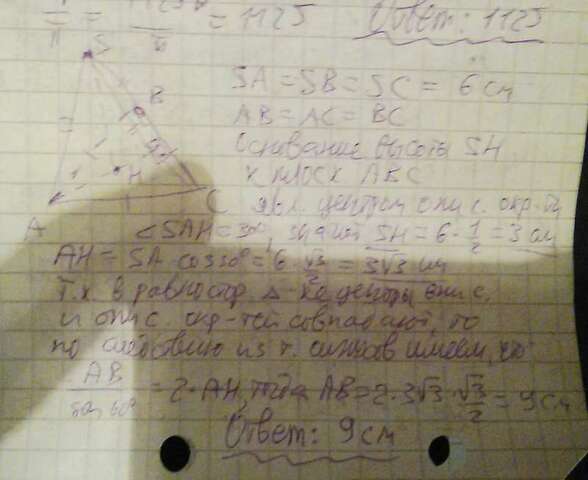 = 1125 Ответ: 1125
S
B
H
A
C
SA = SB = SC = 6 см
AB = AC = BC
Основание высоты SH
к плоск ABC
явл. центром опис. окр-ти
<SAH = 30°, значит SH = 6 · 1/2 = 3 см
AH = SA · cos 30° = 6 · √3/2 = 3√3 см
Т.к. в равностор. Δ-ке центры опис.
и опис. окр-тей совпадают, то
по следствию из т. синусов имеем, что
AB/sin 60° = 2 · AH, тогда AB = 2 · 3√3 · √3/2 = 9 см
Ответ: 9 см